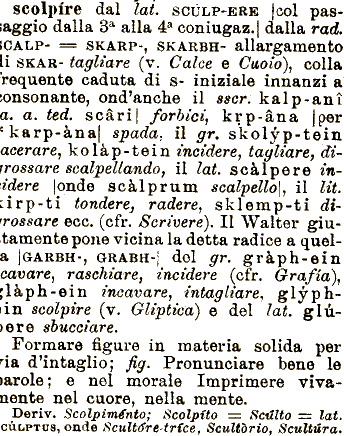 scolpire dal lat. SCÚLP-ERE |col pas-
saggio dalla 3ª alla 4ª coniugaz.| dalla rad.
SCALP- = SKARP-, SKARBH- allargamento
di SKAR- tagliare (v. Calce e Cuoio), colla
frequente caduta di s- iniziale innanzi a
consonante, ond'anche il sscr. kalp-anî
[a. a. ted. scâri] forbici, kṛp-âna |per
* karp-àna| spada, il gr. skolýp-tein
lacerare, kolàp-tein incidere, tagliare, di-
grossare scalpellando, il lat. scàlpere in-
cidere |onde scàlprum scalpello|, il lit.
kirp-ti tondere, radere, sklemp-ti di-
grossare ecc. (cfr. Scrivere). Il Walter giu-
stamente pone vicina la detta radice a quel-
la |GARBH-, GRABH-| del gr. gràph-ein
incavare, raschiare, incidere (cfr. Grafía),
glàph-ein incavare, intagliare, glýph-
ein scolpire (v. Glíptica) e del lat. glú-
bere sbucciare.
Formare figure in materia solida per
via d'intaglio; fig. Pronunciare bene le
parole; e nel morale Imprimere viva-
mente nel cuore, nella mente.
Deriv. Scolpiménto; Scolpíto = Scúlto = lat.
SCÚLPTUS, onde Scultóre-tríce, Scultòrio, Scultúra.